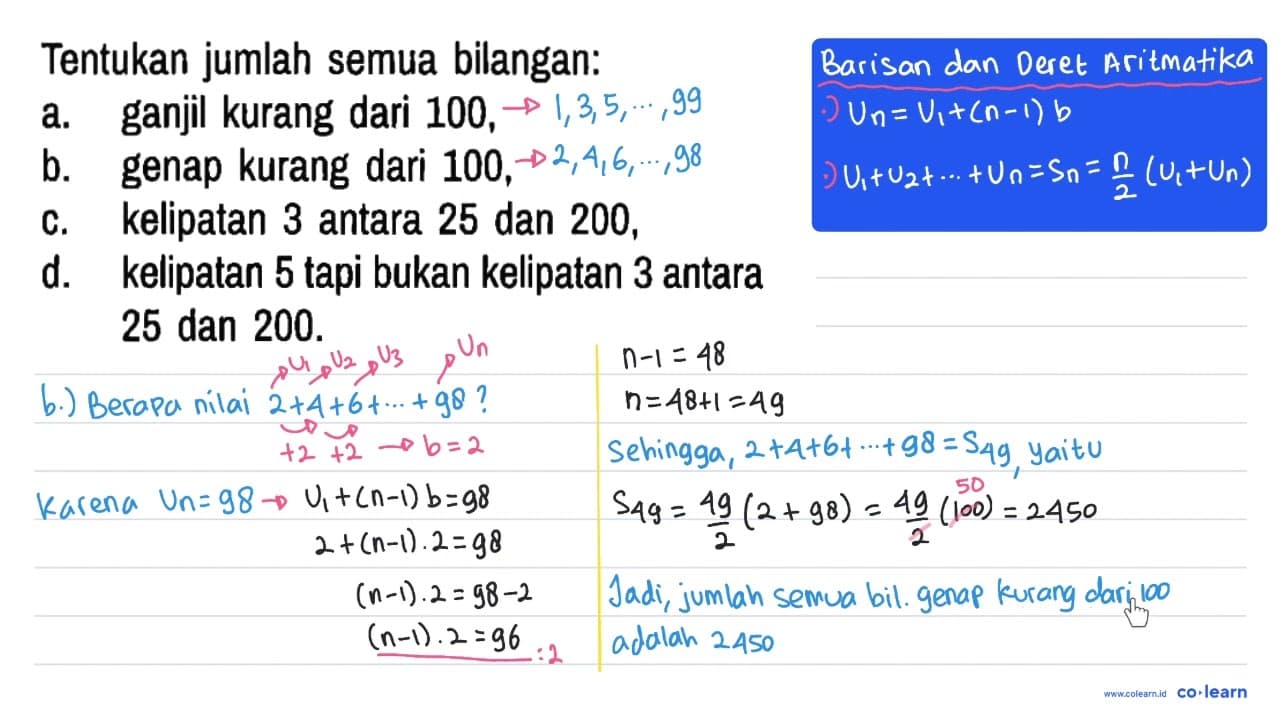 Tentukan jumlah semua bilangan:
a. ganjil kurang dari 100, → 1, 3, 5, ..., 99
b. genap kurang dari 100, → 2, 4, 6, ..., 98
c. kelipatan 3 antara 25 dan 200,
d. kelipatan 5 tapi bukan kelipatan 3 antara
25 dan 200.
Barisan dan Deret Aritmatika
•) Un = U1 + (n-1) b
•) U1 + U2 + ... + Un = Sn = n/2 (U1 + Un)
U1 U2 U3 Un
b.) Berapa nilai 2+4+6+...+98?
+2 +2 → b = 2
Karena Un = 98 → U1 + (n-1) b = 98
2 + (n-1) . 2 = 98
(n-1) . 2 = 98 - 2
(n-1) . 2 = 96
: 2
n-1 = 48
n = 48+1 = 49
Sehingga, 2+4+6+...+98 = S49, yaitu
50
S49 = 49/2 (2 + 98) = 49/2 (100) = 2450
Jadi, jumlah semua bil. genap kurang dari 100
adalah 2450
www.colearn.id co·learn